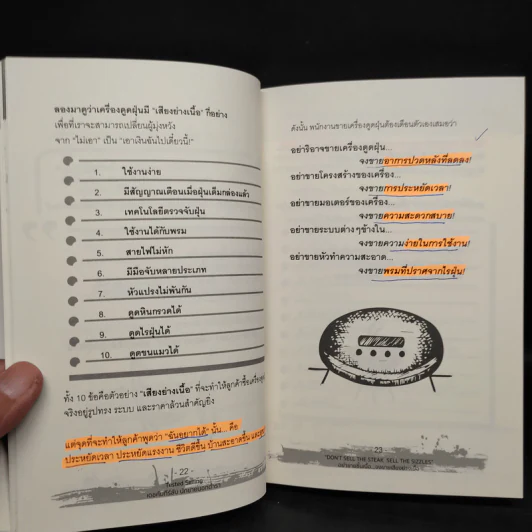 ลองมาดูว่าเครื่องดูดฝุ่นมี "เสียงย่างเนื้อ" กี่อย่าง
เพื่อที่เราจะสามารถเปลี่ยนผู้มุ่งหวัง
จาก "ไม่เอา" เป็น "เอาเงินฉันไปเดี๋ยวนี้!"
1. ใช้งานง่าย
2. มีสัญญาณเตือนเมื่อฝุ่นเต็มกล่องแล้ว
3. เทคโนโลยีตรวจจับฝุ่น
4. ใช้งานได้กับพรม
5. สายไฟไม่หัก
6. มีมือจับหลายประเภท
7. หัวแปรงไม่พันกัน
8. ดูดหินกรวดได้
9. ดูดไรฝุ่นได้
10. ดูดขนแมวได้
ทั้ง 10 ข้อคือตัวอย่าง "เสียงย่างเนื้อ" ที่จะทำให้ลูกค้าซื้อเครื่องดูด
จริงอยู่รูปทรง ระบบ และราคาล้วนสำคัญยิ่ง
แต่จุดที่จะทำให้ลูกค้าพูดว่า "ฉันอยากได้" นั้น... คือ
ประหยัดเวลา ประหยัดแรงงาน ชีวิตดีขึ้น บ้านสะอาดขึ้น
- 22 -
Tested Selling
ดังนั้น พนักงานขายเครื่องดูดฝุ่นต้องเตือนตัวเองเสมอว่า
อย่าริอาจขายเครื่องดูดฝุ่น...
จงขายอาการปวดหลังที่ลดลง!
อย่าขายโครงสร้างของเครื่อง...
จงขายการประหยัดเวลา!
อย่าขายมอเตอร์ของเครื่อง...
จงขายความสะดวกสบาย!
อย่าขายระบบต่าง ๆ ข้างใน...
จงขายความง่ายในการใช้งาน!
อย่าขายหัวทำความสะอาด...
จงขายพรมที่ปราศจากไรฝุ่น!
- 23 -
"DON'T SELL THE STEAK. SELL THE SIZZLES!"